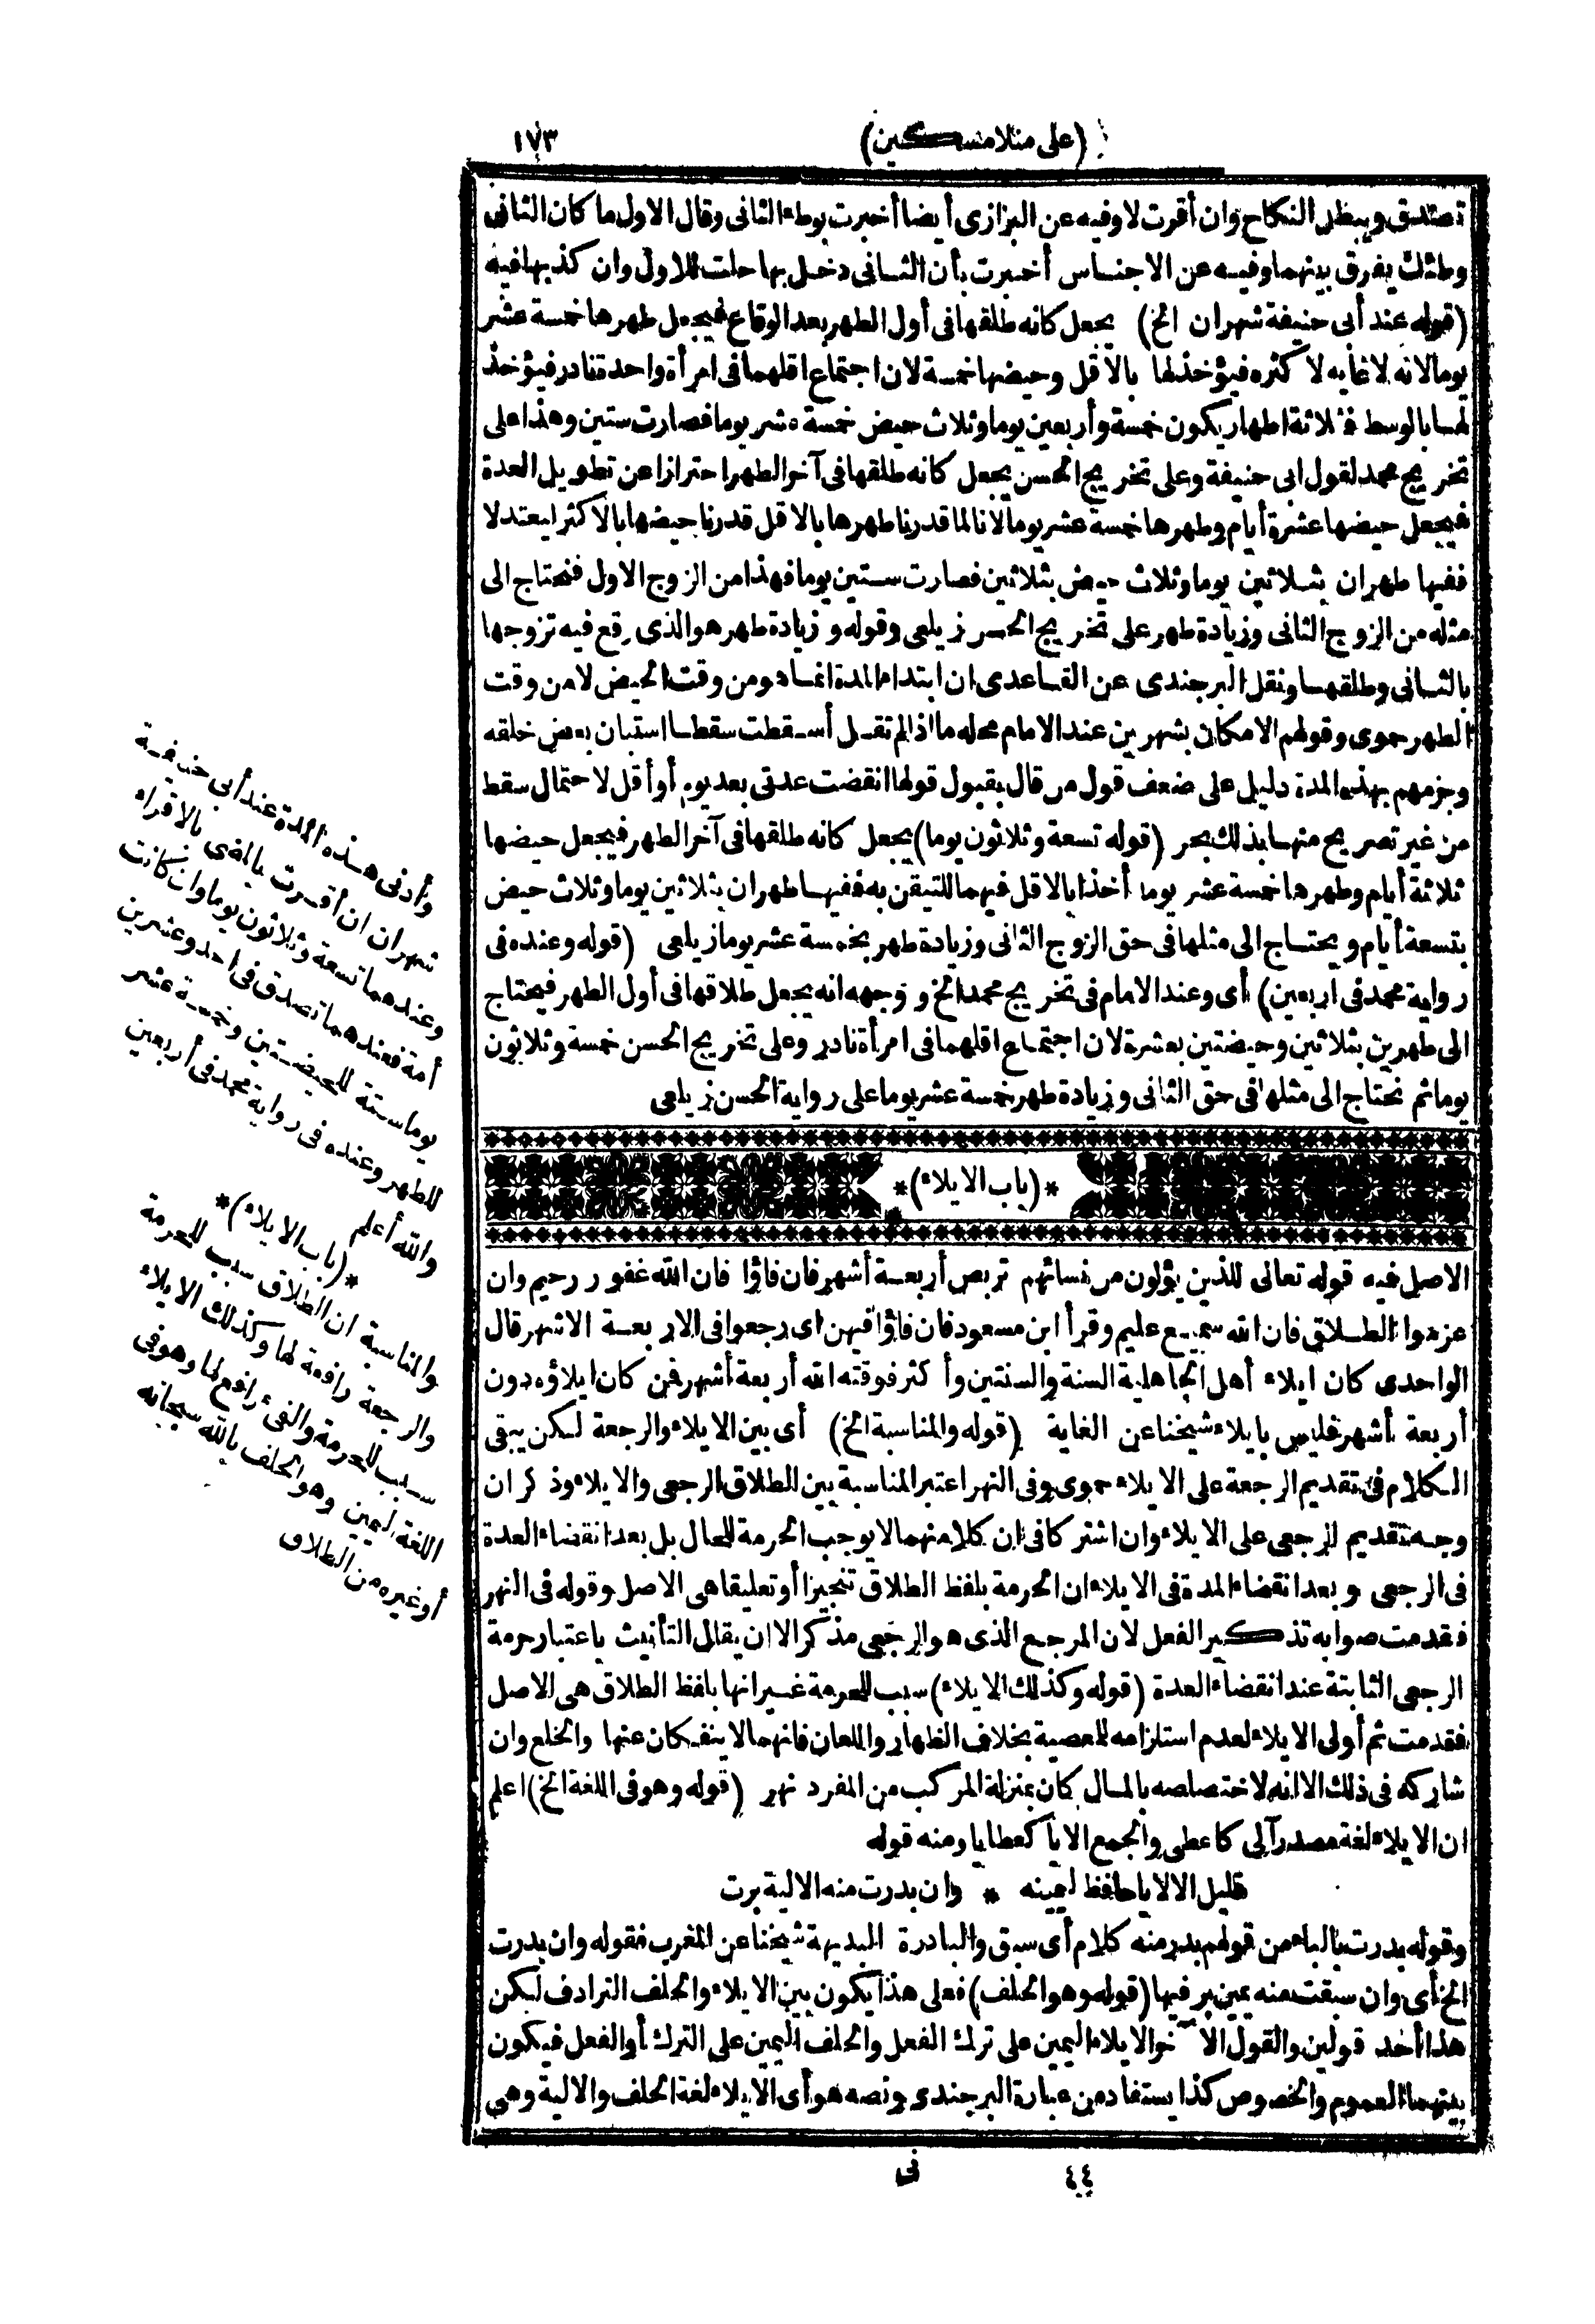 (على منلامسكين)
١٧٣
تصدق ويبطل النكاح وان أقرت لا وفيه عن البزازى أيضا أخبرت بوطء الثانى وقال الاول ما كان الثانى
وطئك يفرق بينهما وفيه عن الاجناس أخبرت بأن الثانى دخل بها حلت للاول وان كذبها فيه
(قوله عند أبى حنيفة شهران الخ) يجعل كانه طلقها فى أول الطهر بعد الوقاع فيجعل طهرها خمسة عشر
يوما لانه لا غاية لا كثره فيؤخذ لها بالاقل وحيضها خمسة لان اجتماع اقلهما فى امرأة واحدة نادر فيؤخذ
لهما بالوسط فثلاثة اطهار يكون خمسة وأربعين يوما وثلاث حيض خمسة عشر يوما فصارت ستين وهذا على
تخريج محمد لقول ابى حنيفة وعلى تخريج الحسن يجعل كانه طلقها فى آخر الطهر احترازا عن تطويل العدة
فيجعل حيضها عشرة أيام وطهرها خمسة عشر يوما لانا لما قدرنا طهرها بالاقل قدرنا حيضها بالاكثر ليعتدلا
ففيها طهران بثلاثين يوما وثلاث حيض بثلاثين فصارت ستين يوما فهذا من الزوج الاول فنحتاج الى
مثله من الزوج الثانى وزيادة طهر على تخريج الحسن زيلعى وقوله وزيادة طهر هو الذى وقع فيه تزوجها
بالثانى وطلقها ونقل البرجندى عن القاعدى ان ابتداء المدة انما هو من وقت الحيض لا من وقت
الطهر حموى وقولهم الامكان بشهرين عند الامام محله ما اذا لم تقل أسقطت سقطا استبان بعض خلقه
وجزمهم بهذه المدة دليل على ضعف قول من قال بقبول قولها انقضت عدتى بعد يوم أو أقل لاحتمال سقط
من غير تصريح منها بذلك بحر (قوله تسعة وثلاثون يوما) يجعل كانه طلقها فى آخر الطهر فيجعل حيضها
ثلاثة أيام وطهرها خمسة عشر يوما أخذا بالاقل فيهما للتيقن به ففيها طهران بثلاثين يوما وثلاث حيض
بتسعة أيام ويحتاج الى مثلها فى حق الزوج الثانى وزيادة طهر بخمسة عشر يوما زيلعى (قوله وعنده فى
رواية محمد فى اربعين) أى وعند الامام فى تخريج محمد الخ ووجهه انه يجعل طلاقها فى أول الطهر فيحتاج
الى طهرين بثلاثين وحيضتين بعشرة لان اجتماع اقلهما فى امرأة نادر وعلى تخريج الحسن خمسة وثلاثون
يوما ثم نحتاج الى مثلها فى حق الثانى وزيادة طهر خمسة عشر يوما على رواية الحسن زيلعى
*(باب الايلاء)*
الاصل فيه قوله تعالى للذين يؤلون من نسائهم تربص أربعة أشهر فان فاؤا فان الله غفور رحيم وان
عزموا الطلاق فان الله سميع عليم وقرأ ابن مسعود فان فاؤا فيهن اى رجعوا فى الاربعة الاشهر قال
الواحدى كان ايلاء أهل الجاهلية السنة والسنتين وأكثر فوقته الله أربعة أشهر فمن كان ايلاؤه دون
أربعة أشهر فليس بايلاء شيخنا عن الغاية (قوله والمناسبة الخ) أى بين الايلاء والرجعة لكن يبقى
الكلام فى تقديم الرجعة على الايلاء حموى وفى النهر اعتبر المناسبة بين الطلاق الرجعى والايلاء وذكر ان
وجه تقديم الرجعى على الايلاء وان اشتركا فى ان كلا منهما لا يوجب الحرمة للحال بل بعد انقضاء العدة
فى الرجعى وبعد انقضاء المدة فى الايلاء ان الحرمة بلفظ الطلاق تنجيزا أو تعليقا هى الاصل وقوله فى النهر
فقدمت صوابه تذكير الفعل لان المرجع الذى هو الرجعى مذكر الا ان يقال التأنيث باعتبار حرمة
الرجعى الثابتة عند انقضاء العدة (قوله وكذلك الايلاء) سبب للحرمة غير انها بلفظ الطلاق هى الاصل
فقدمت ثم أولى الايلاء لعدم استلزامه للمعصية بخلاف الظهار واللعان فانهما لا ينفكان عنها والخلع وان
شاركه فى ذلك الا انه لاختصاصه بالمال كان بمنزلة المركب من المفرد نهر (قوله وهو فى اللغة الخ) اعلم
ان الايلاء لغة مصدر آلى كاعطى والجمع الايا كعطايا ومنه قوله
قليل الالايا حافظ ليمينه * وان بدرت منه الالية برت
وقوله بدرت بالباء من قولهم بدر منه كلام أى سبق والبادرة البديهة شيخنا عن المغرب فقوله وان بدرت
الخ أى وان سبقت منه يمين بر فيها (قوله وهو الحلف) فعلى هذا يكون بين الايلاء والحلف الترادف لكن
هذا أحد قولين والقول الآخر الايلاء اليمين على ترك الفعل والحلف اليمين على الترك أو الفعل فيكون
بينهما العموم والخصوص كذا يستفاد من عبارة البرجندى ونصه هو أى الايلاء لغة الحلف والالية وهى
٤٤
نى
وأدنى هذه المدة عند أبى حنيفة
شهران ان أقرت بالمضى بالاقراء
وعندهما تسعة وثلاثون يوما وان كانت
أمة فعندهما تصدق فى احد وعشرين
يوما ستة للحيضتين وخمسة عشر
للطهر وعنده فى رواية محمد فى أربعين
والله أعلم
*(باب الايلاء)*
والمناسبة ان الطلاق سبب للحرمة
والرجعة رافعة لها وكذلك الايلاء
سبب للحرمة والفىء رافع لها وهو فى
اللغة اليمين وهو الحلف بالله سبحانه
أو غيره من الطلاق